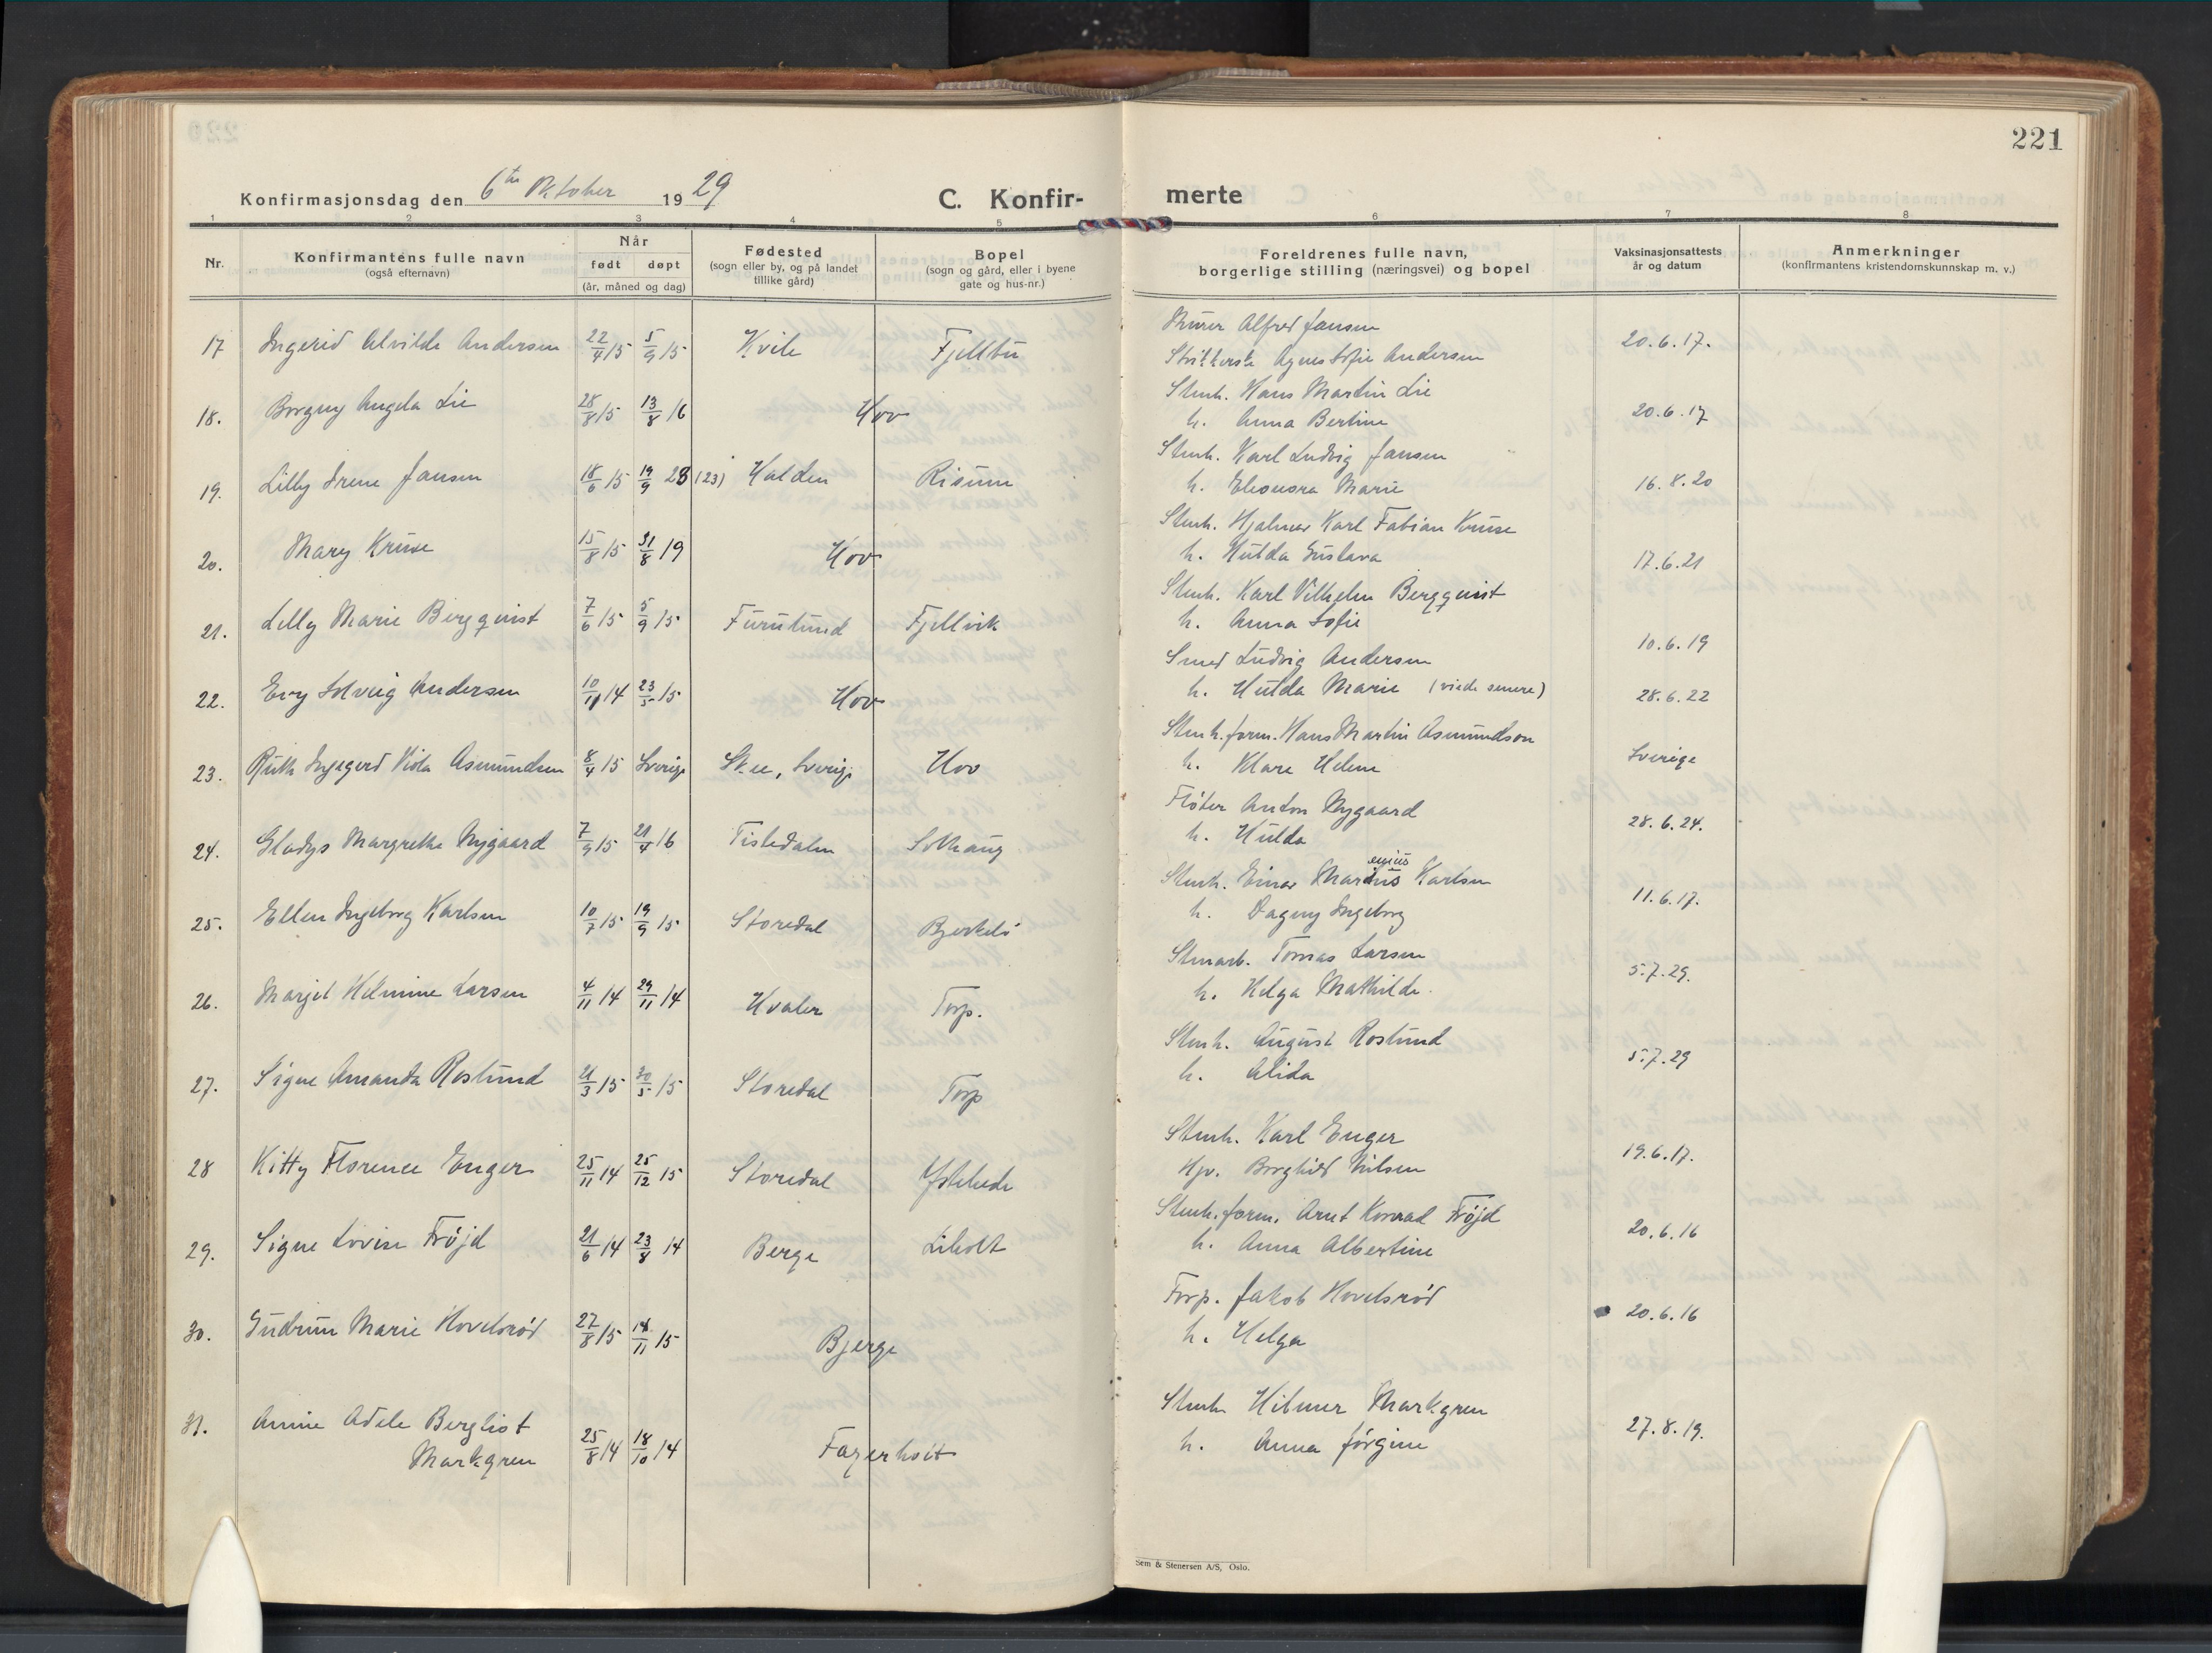 221
Konfirmasjonsdag den 6te Oktober 1929
C. Konfir-
merte
1 2 3 4 5 6 7 8
Nr.
Konfirmantens fulle navn
(også efternavn)
Når
født døpt
(år, måned og dag)
Fødested
(sogn eller by, og på landet
tillike gård)
Bopel
(sogn og gård, eller i byene
gate og hus-nr.)
Foreldrenes fulle navn,
borgerlige stilling (næringsvei) og bopel
Vaksinasjonsattests
år og datum
Anmerkninger
(konfirmantens kristendomskunnskap m. v.)
17 Ingerid Alvilde Andersen 22/4 15 5/9 15 Kvile Fjelltu
Murer Alfred Jansen
Agnes Sofie Andersen
20.6.17.
18. Borgny Angela Lie 28/8 15 13/8 16 Hov
Stenh. Hans Martin Lie
h. Anna Bertine
20.6.17
19. Lilly Irene Jansen 18/6 15 19/9 23 (23) Halden Risum
Stenh. Karl Ludvig Jansen
h. Eleonora Marie
16.8.20
20. Mary Kruse 15/8 15 31/8 19 Hov
Stenh. Hjalmar Karl Fabian Kruse
h. Hulda Gustava
17.6.21
21. Lilly Marie Bergquist 7/6 15 5/9 15 Furulund Fjellvik
Stenh. Karl Vilhelm Bergquist
h. Anna Sofie
10.6.19
22. Evy Solveig Andersen 10/11 14 23/5 15 Hov
Smed Ludvig Andersen
h. Hulda Marie (viede senere)
28.6.22
23. Ruth Ingegerd Viola Asmundsen 8/4 15 Sverige Skee, Sverige Hov
Stenh. form. Hans Martin Asmundson
h. Klara Helene
Sverige
24. Gladys Margrethe Nygaard 7/9 15 21/4 16 Tistedalen Solhaug
Fløter Anton Nygaard
h. Hulda
28.6.24.
25. Ellen Ingeborg Karlsen 10/7 15 19/9 15 Storedal
enius
Stenh. Einar Marius Karlsen
h. Dagny Ingeborg
11.6.17.
26. Marjet Helmine Larsen 4/11 14 29/11 14 Hvaler Torp.
Stenarb. Tomas Larsen
h. Helga Mathilde.
5.7.29.
27. Signe Amanda Roslund 21/3 15 30/5 15 Storedal Torp
Stenh. August Roslund
h. Alida
5.7.29
28 Kitty Florence Enger 25/11 14 25/12 15 Storedal
Stenh. Karl Enger
Hjv. Borghild Nilsen
19.6.17.
29. Signe Lovise Frøjd 21/6 14 23/8 14 Berge Liholt
Stenh. form. Arnt Konrad Frøjd
h. Anna Albertine
20.6.16
30. Gudrun Marie Hovelsrød 27/8 15 14/11 15 Bjerge
Forp. Jakob Hovelsrød
h. Helga
20.6.16
31. Annie Adele Bergliot
Markgren 25/8 14 18/10 14 Fagerholt
Stenh. Hilmer Markgren
h. Anna Jørgine
27.8.19.
Sem & Stenersen A/S, Oslo.